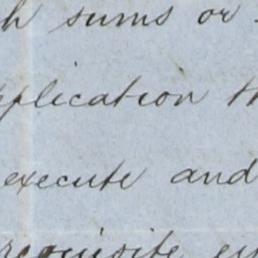 h sums or
pplication th
execute and
requisite